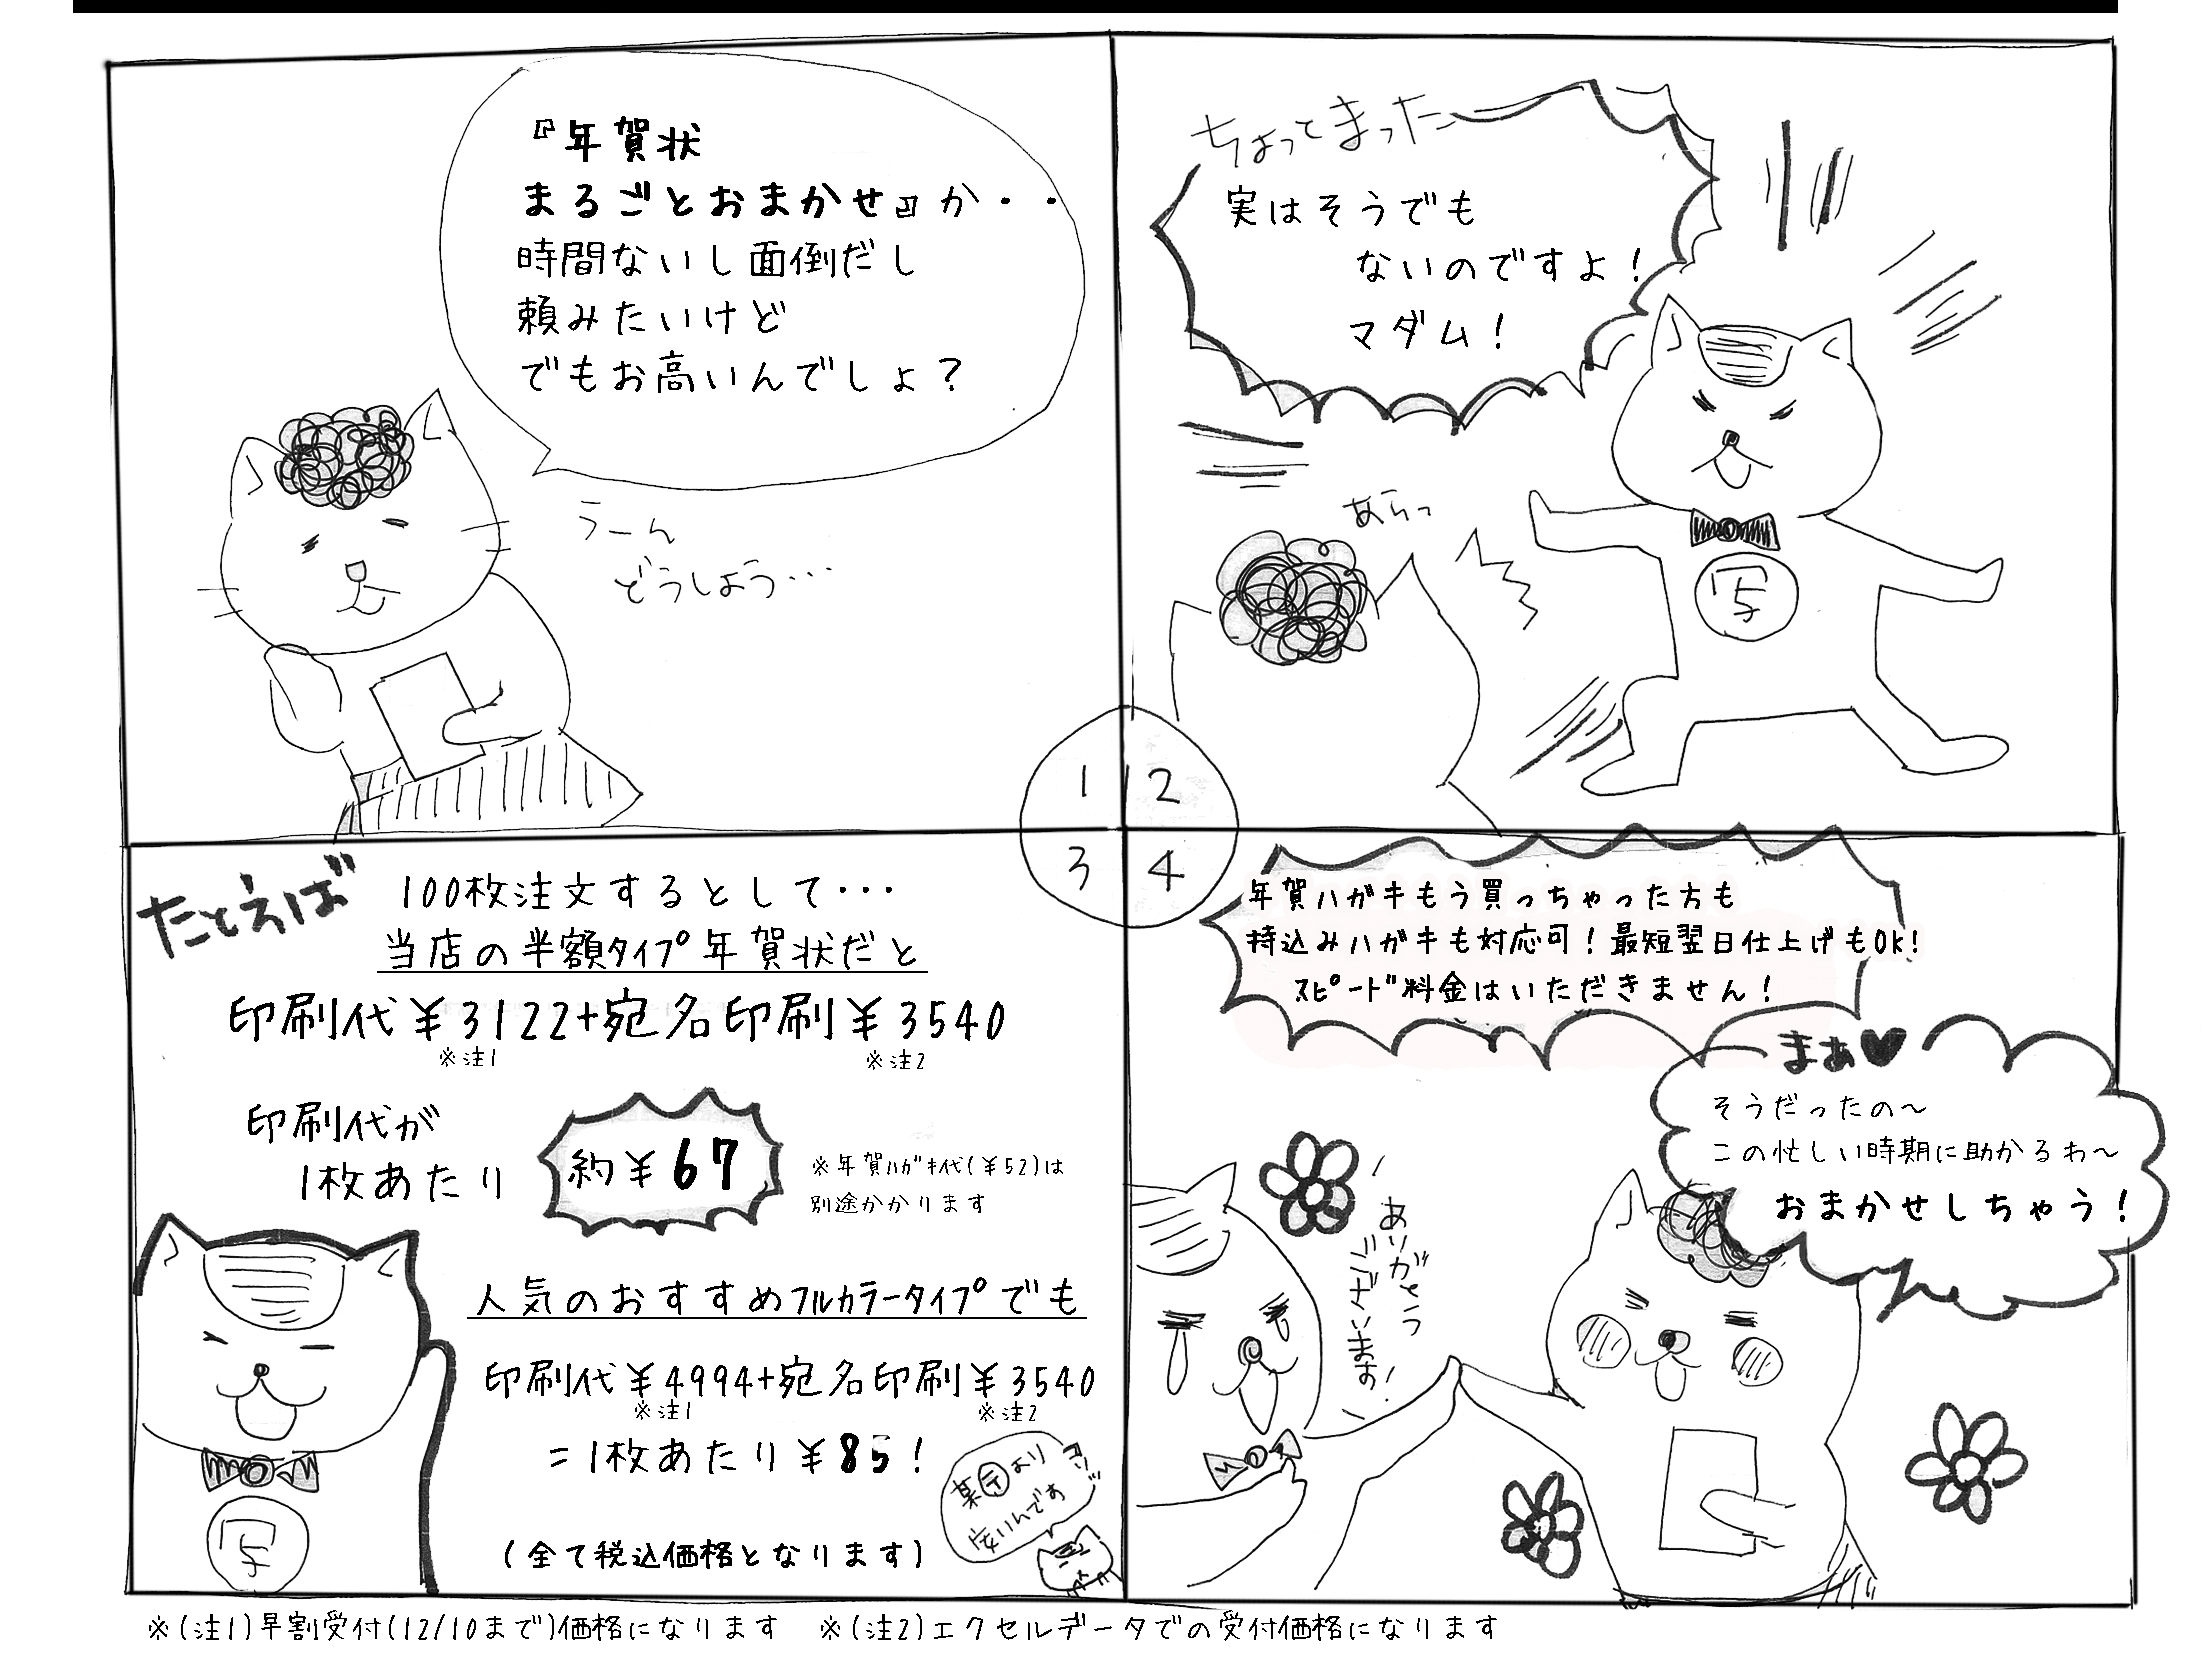 『年賀状
まるごとおまかせ』か・・
時間ないし面倒だし
頼みたいけど
でもお高いんでしょ？
うーん
どうしよう…
ちょっとまったー
実はそうでも
ないのですよ！
マダム！
あらっ
写
1 2
3 4
たとえば
100枚注文するとして・・・
当店の半額タイプ年賀状だと
印刷代￥3122+宛名印刷￥3540
※注1 ※注2
印刷代が
1枚あたり
約￥67
※年賀ハガキ代(￥52)は
別途かかります
人気のおすすめフルカラータイプでも
印刷代￥4994+宛名印刷￥3540
※注1 ※注2
=1枚あたり￥85！
(全て税込価格となります)
写
某㋢より
安いんです
年賀ハガキもう買っちゃった方も
持込みハガキも対応可！最短翌日仕上げもOK!
スピード料金はいただきません！
まぁ♥
そうだったの～
この忙しい時期に助かるわ～
おまかせしちゃう！
ありがとう
ございます！
※(注1)早割受付(12/10まで)価格になります ※(注2)エクセルデータでの受付価格になります